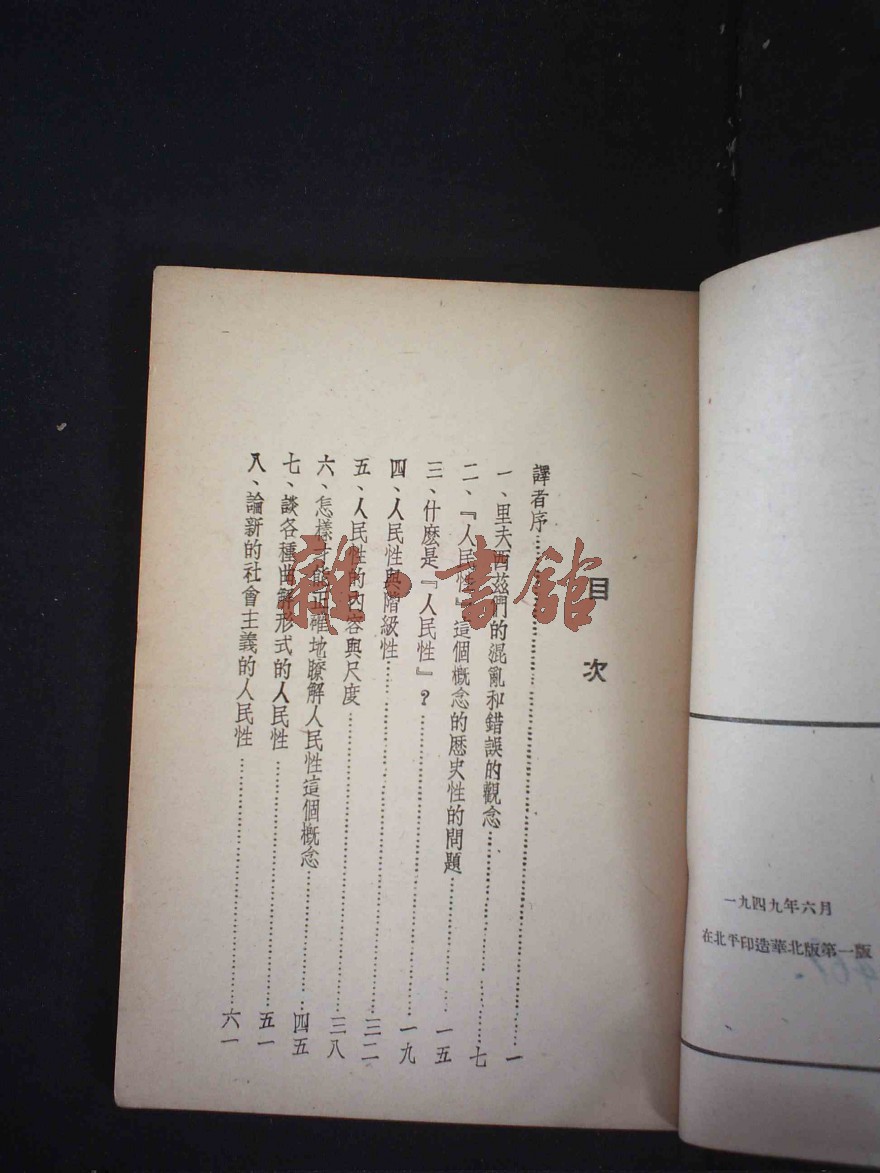 一九四九年六月
在北平印造華北版第一版
目次
譯者序……一
一、里夫西茲們的混亂和錯誤的觀念……七
二、『人民性』這個概念的歷史性的問題……一五
三、什麼是『人民性』？……一九
四、人民性與階級性……三二
五、人民性的內容與尺度……三八
六、怎樣才能正確地瞭解人民性這個概念……四五
七、談各種曲解形式的人民性……五一
八、論新的社會主義的人民性……六一
雜·書館